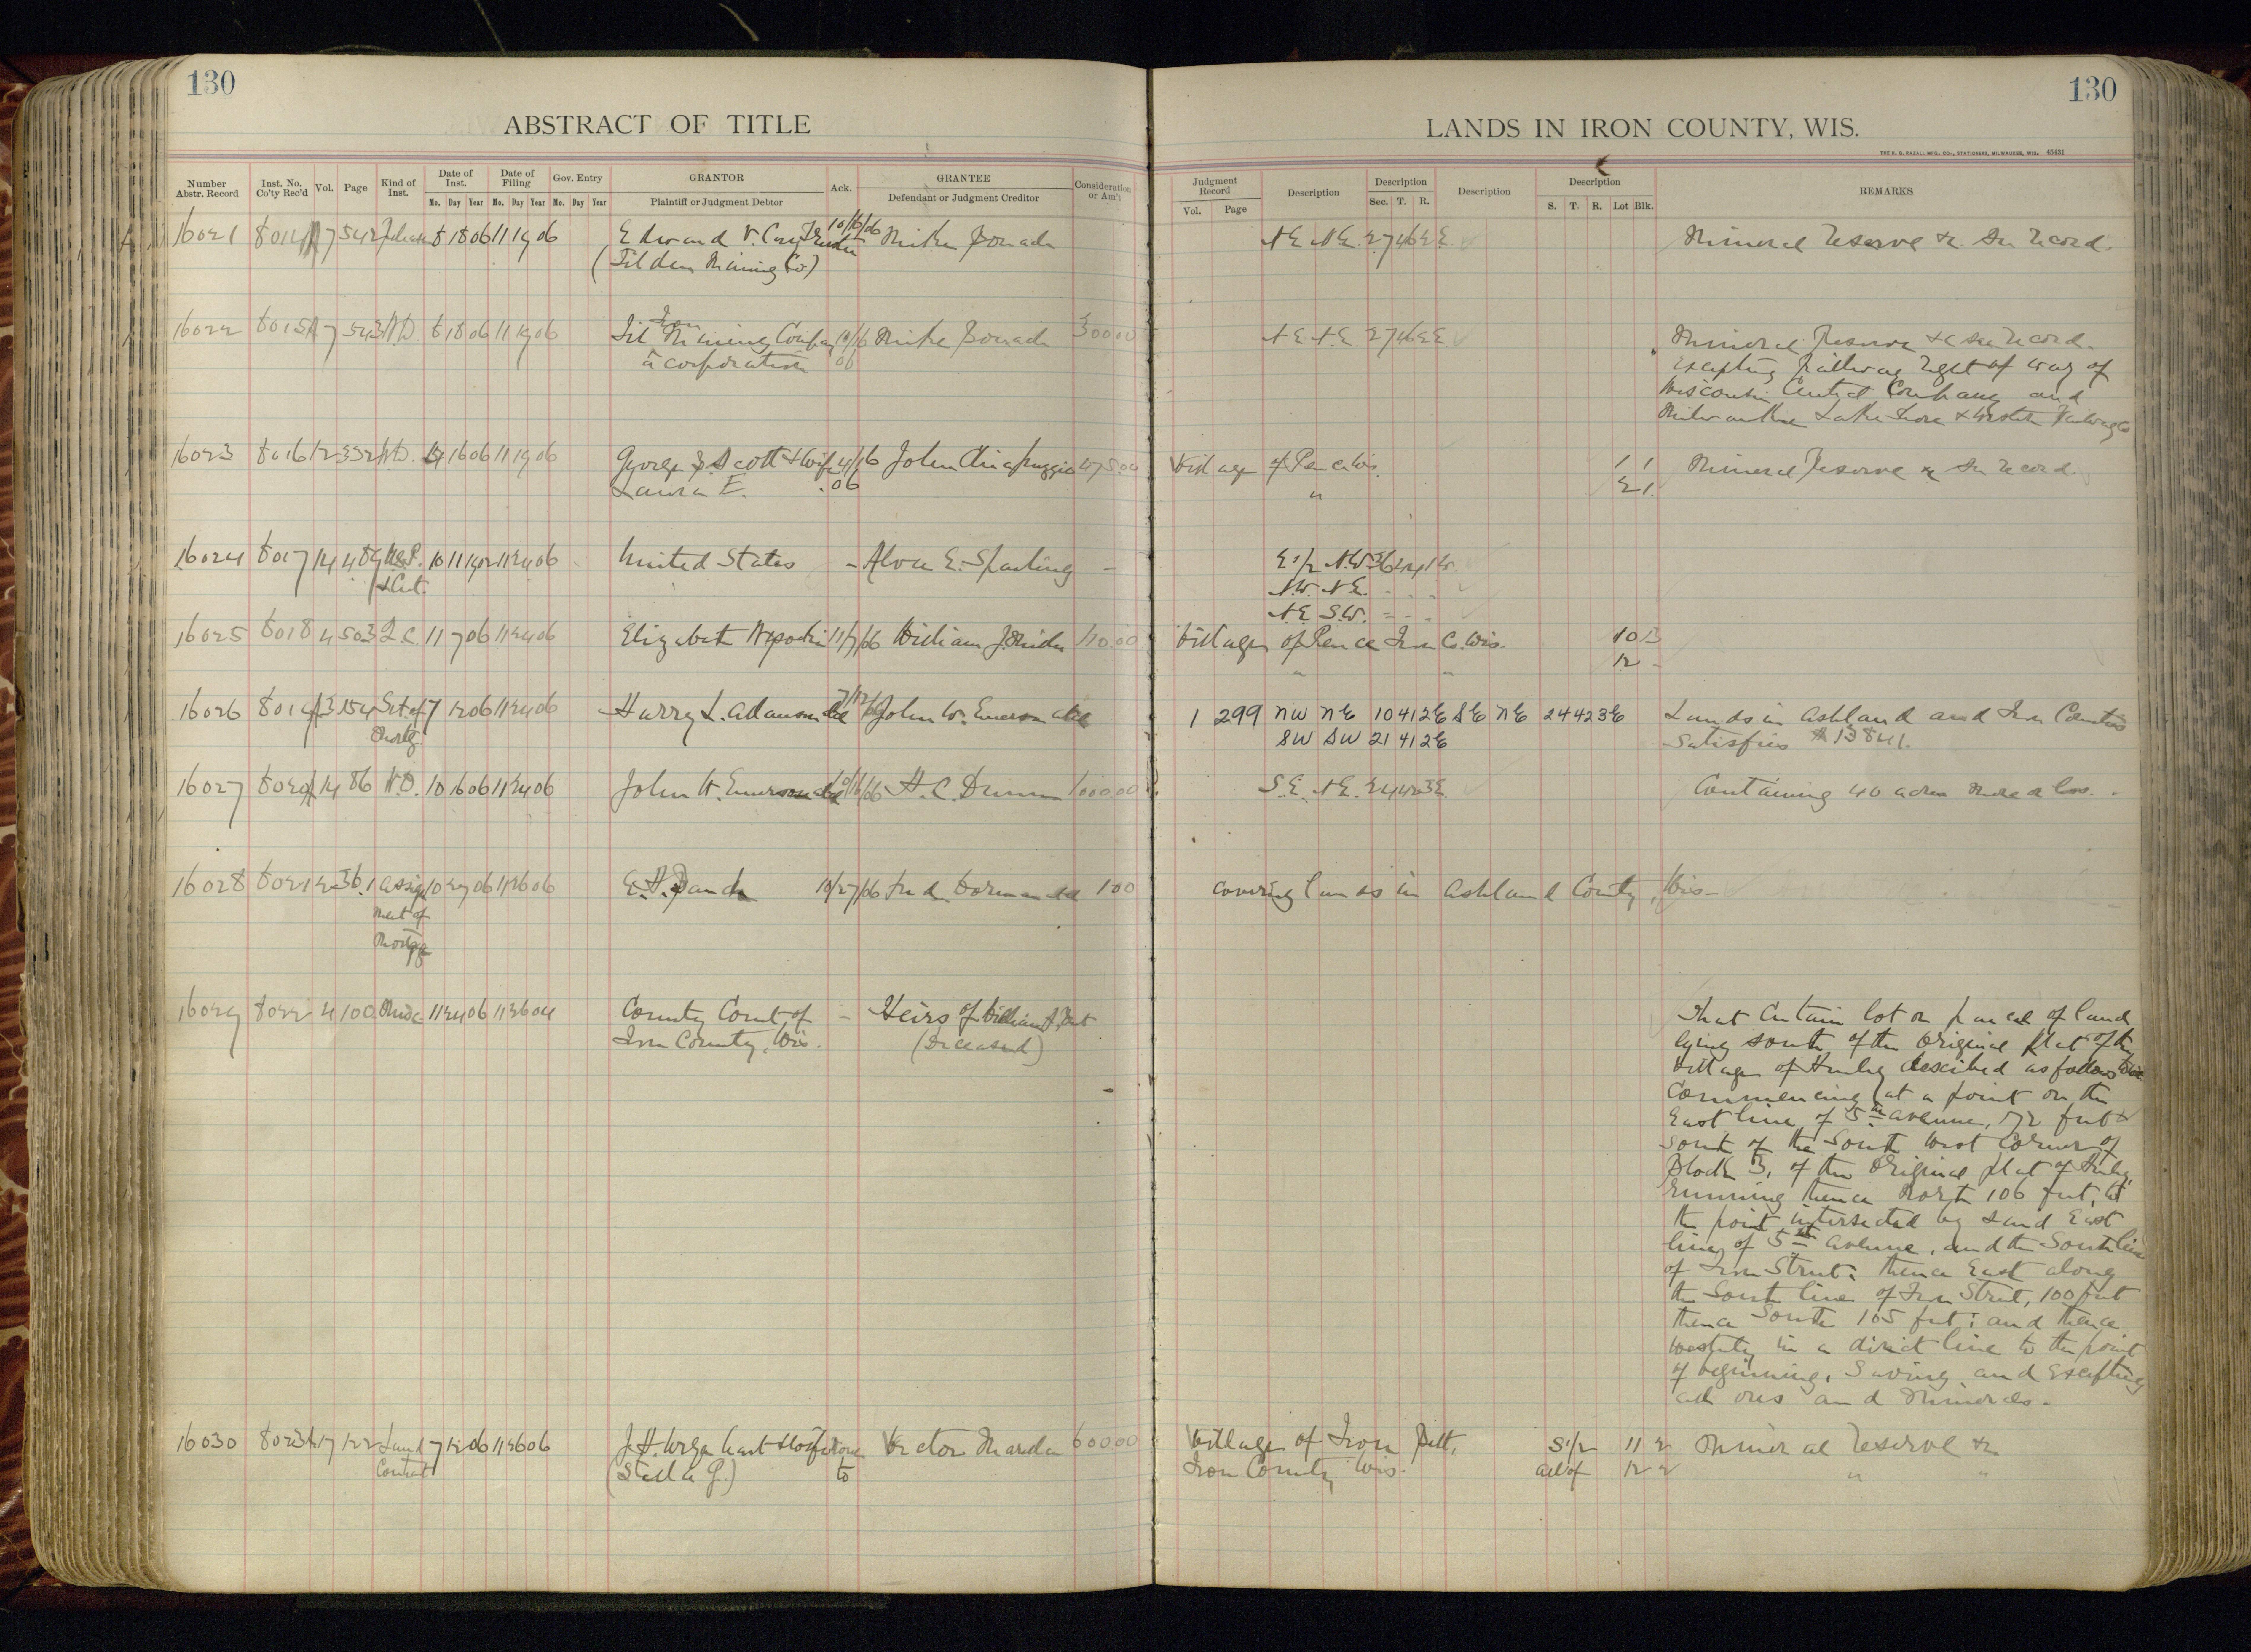 130
130
ABSTRACT OF TITLE
LANDS IN IRON COUNTY, WIS.
Number Abstr. Record
Inst. No. Co'ty Rec'd
Vol.
Page
Kind of Inst.
Date of Inst.
Mo. Day Year
Date of Filing
Mo. Day Year
Gov. Entry
Mo. Day Year
GRANTOR
Plaintiff or Judgment Debtor
Ack.
GRANTEE
Defendant or Judgment Creditor
Consideration or Am't
Judgment Record
Vol. Page
Description
Description
Sec. T. R.
Description
Description
S. T. R. Lot Blk.
REMARKS
16021 8014 17 542 Release 8 18 06 11 19 06 Edward V. Cary Trustee 10/16/06 Mike
(Tilden Mining Co.)
NE NE. 27 46 2E
Mineral Reserve &c. See Record.
16022 8015 17 543 WD. 8 18 06 11 19 06 Iron Mining Company 10/16 06 Mike 300 00
a corporation
NE NE 27 46 2E
Mineral Reserve &c See Record.
Excepting Railway Right of way of
Wisconsin Central Company and
Milwaukee Lake Shore & Western Railway Co
16023 8016 12 332 WD. 16 06 11 19 06 George S. Scott & Wife John 475.00
Laura E. .06
Village of Pence Wis. 1 1
" 2 1.
Mineral Reserve &c See Record.
16024 8017 14 489 10 11 11 24 06 United States - Alva E. Sparling -
& Cert.
E 1/2 N.W. 36
N.W. N.E.
N.E. S.W.
16025 8018 4 503 Q.C. 11 7 06 11 24 06 Elizabeth 11/7/06 William J. 110.00
Village of Pence Iron Co. Wis. 10 B
" " 12 -
16026 8019 13 154 Sat of 7 12 06 11 24 06 Harry L. Adams et al 7/12/06 John W. Emerson et al
Mortg
1 299 NW NE 10 41 2E SE NE 24 42 3E
SW SW 21 41 2E
Lands in Ashland and Iron Counties
Satisfies # 13841.
16027 8020 14 86 W.D. 10 16 06 11 24 06 John W. Emerson et al 10/16/06 H. C. 100 00
S.E. NE. 24 42 3E.
Containing 40 acres more or less.
16028 8021 2 361 Assign 10 27 06 11 26 06 E. H. 10/27/06 et al 1 00
ment of
Mortgage
covering lands in Ashland County, Wis-
16029 8022 4 100 11 24 06 11 26 06 County Court of - Heirs of William
Iron County, Wis. (Deceased)
That Certain lot or parcel of land
lying south of the Original plat of the
Village of Hurley described as follows
Commencing at a point on the
East line of 5th Avenue, 72 feet
South of the South West Corner of
Block 3, of the Original plat of Hurley,
running thence North 106 feet, to
the point intersected by said East
line of 5th Avenue, and the South line
of Iron Street: thence East along
the South line of Iron Street, 100 feet
thence South 105 feet; and thence
westerly in a direct line to the point
of beginning, Saving and Excepting
all ores and Minerals.
16030 8023 17 122 Land 7 12 06 11 26 06 J. H. & Wife None Victor 600 00
Contract (Stella G.) to
Village of Iron S 1/2 11 2
Iron County Wis. all of 12 2
Mineral Reserve &c
" "